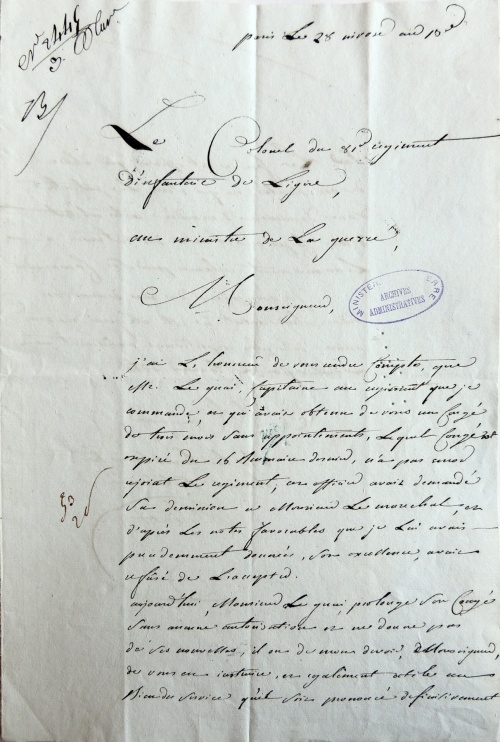 No 2445
3. D
B
paris Le 28 nivose an 13e
Le Colonel du 81e regiment
d'infanterie de Ligne,
au ministre de La guerre,
Monseigneur,
MINISTÈRE GUERRE
ARCHIVES
ADMINISTRATIVES
j'ai L'honneur de vous rendre Compte, que
Mr. Le quai, Capitaine au regiment que je
commande, et qui avait obtenu de vous un Congé
de trois mois sans appointements, Lequel Congé est
expiré du 16 Brumaire dernier, n'a pas encore
rejoint Le regiment, cet officier avait demandé
Sa demission a Monsieur Le marechal, et
d'après Les notes favorables que je Lui avais
precedemment données, Son excellence, avait
refusé de L'accepter.
aujourd'hui, Monsieur Le quai, prolonge Son Congé
Sans aucune autorisation et ne donne pas
de Ses nouvelles; il est de mon devoir, Monseigneur,
de vous en instruire, et egalement utile au
Bien du Service qu'il Soit prononcé definitivement